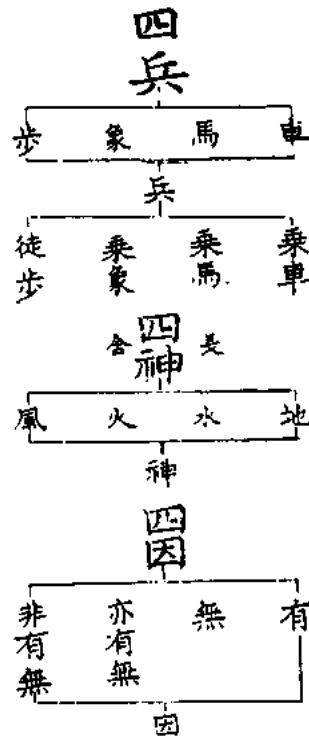 四兵
車
馬
象
歩
兵
乗車
乗馬
乗象
徒歩
四神
長含
地
水
火
風
神
四因
有
無
亦有無
非有無
因